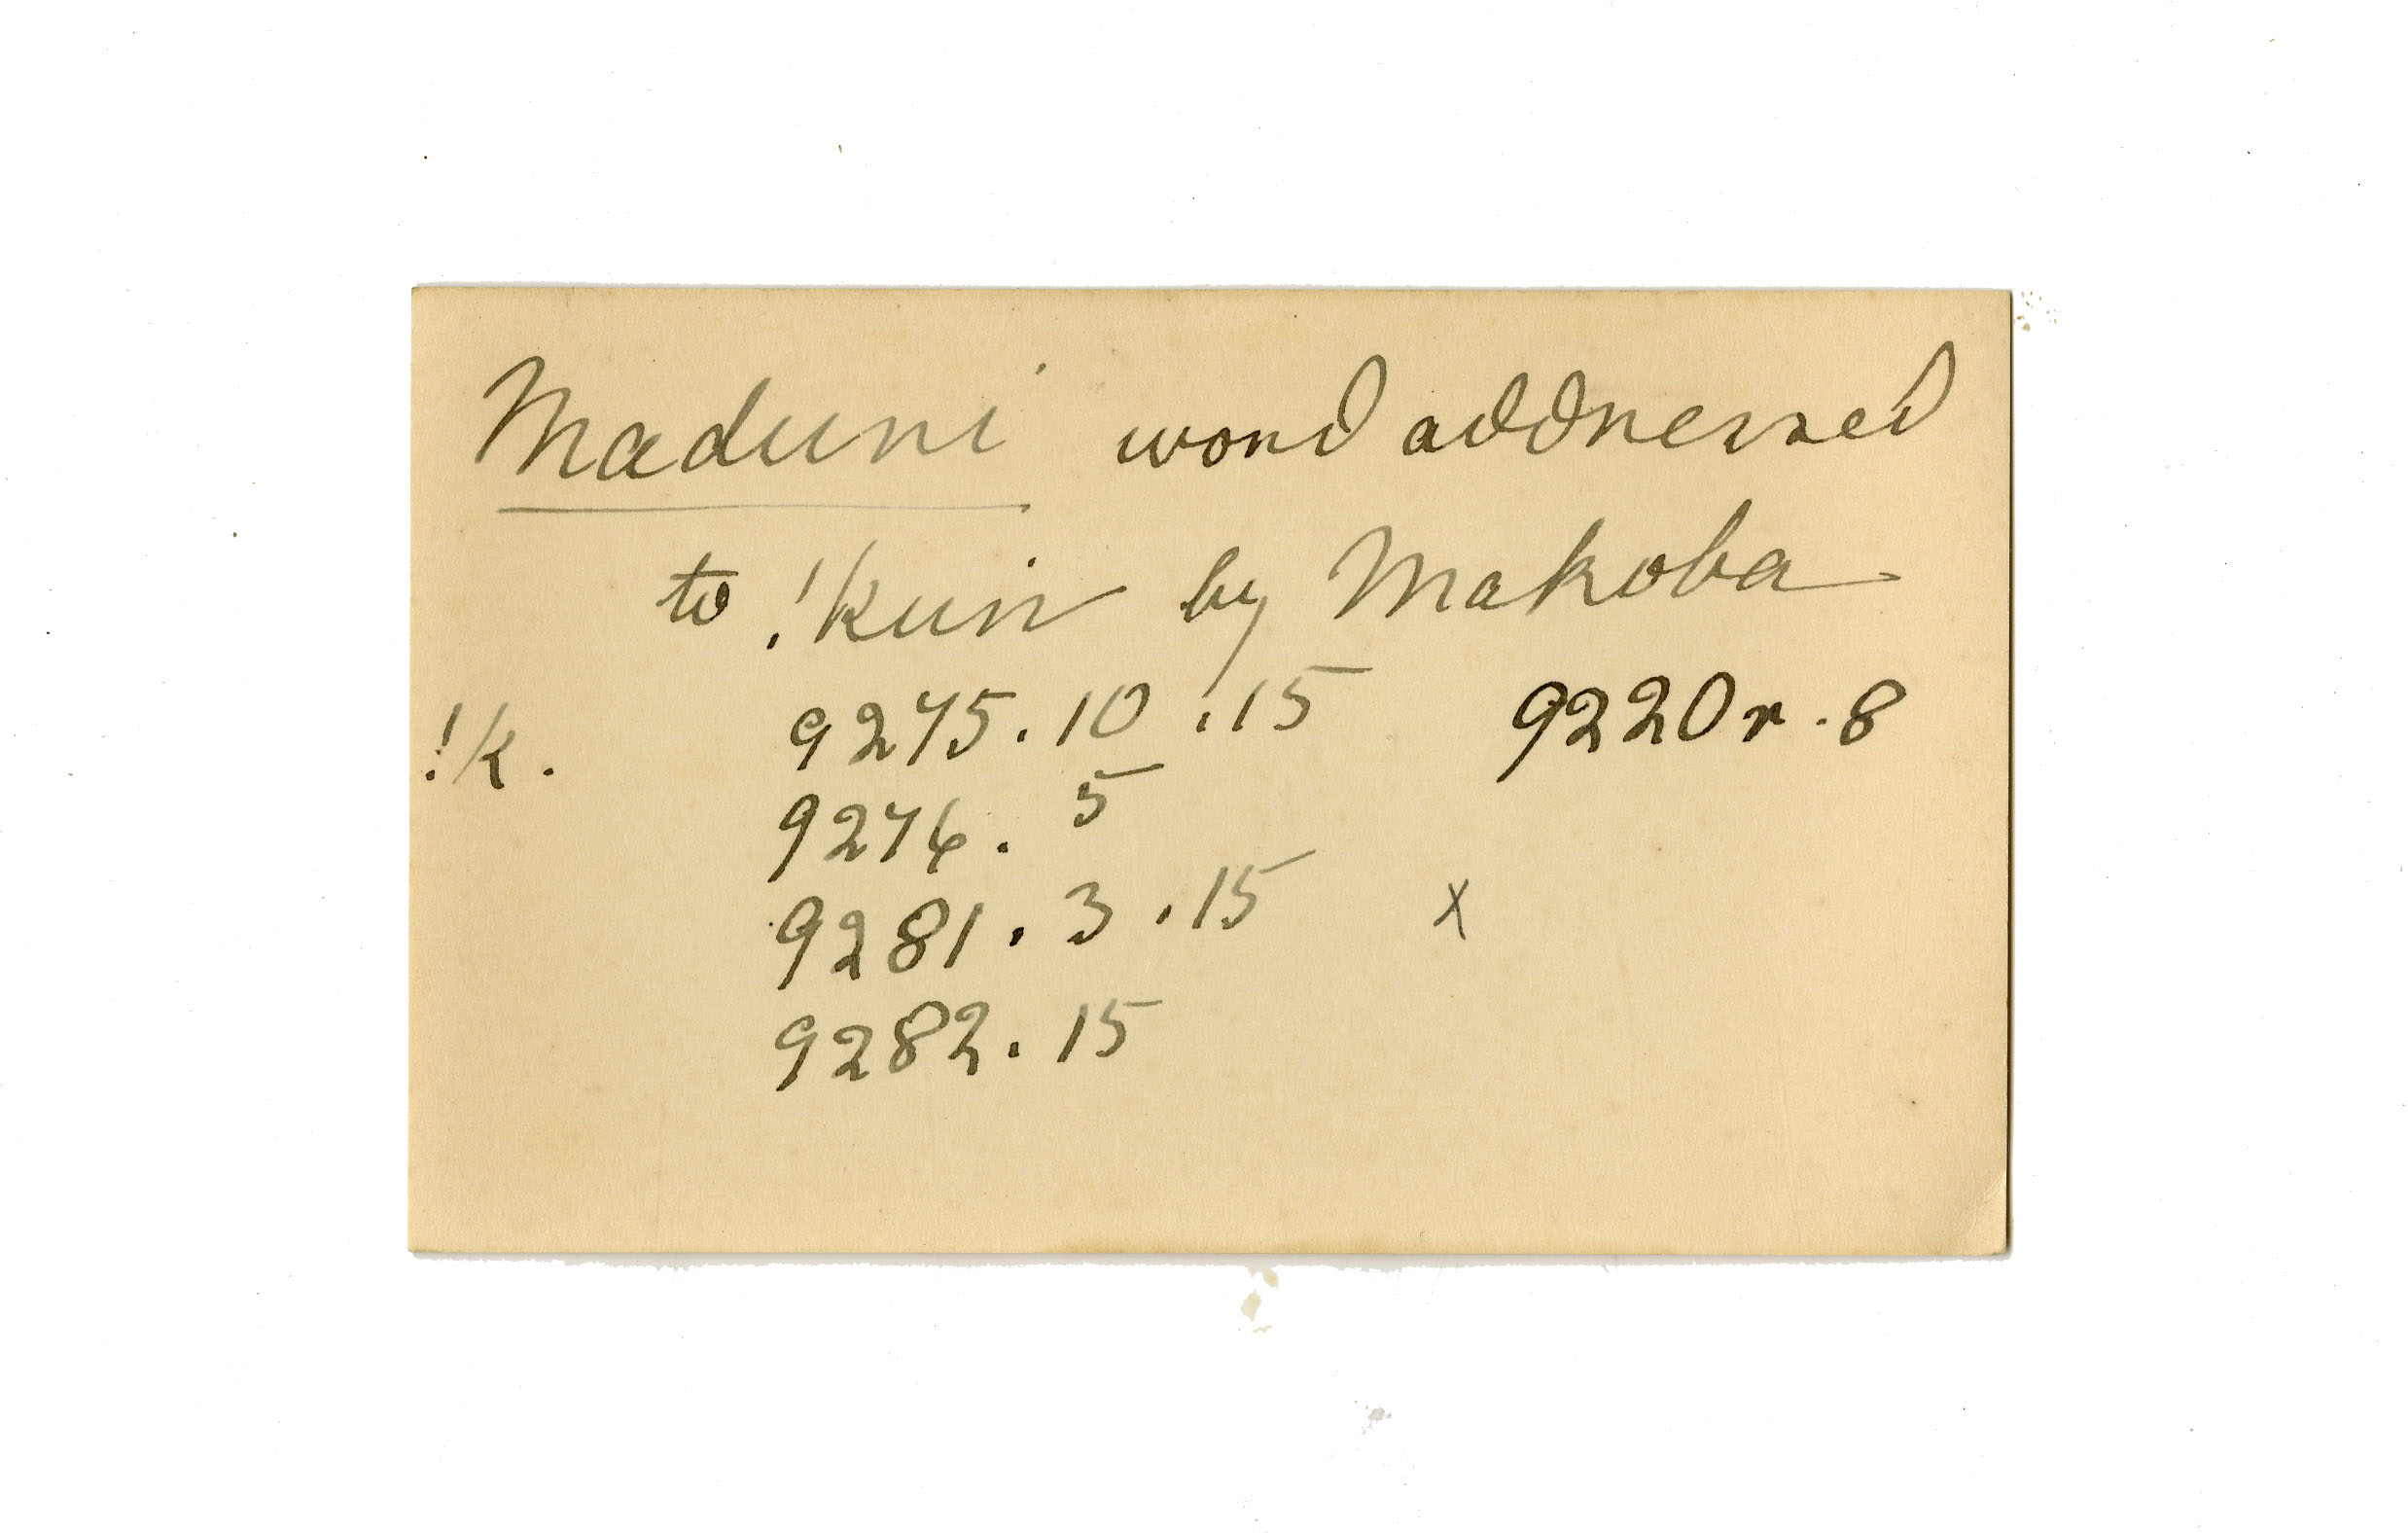 Maduni word addressed
to !kuṅ by Makoba
!k. 9275.10.15 9220r.8
9276.5
9281.3.15 x
9282.15